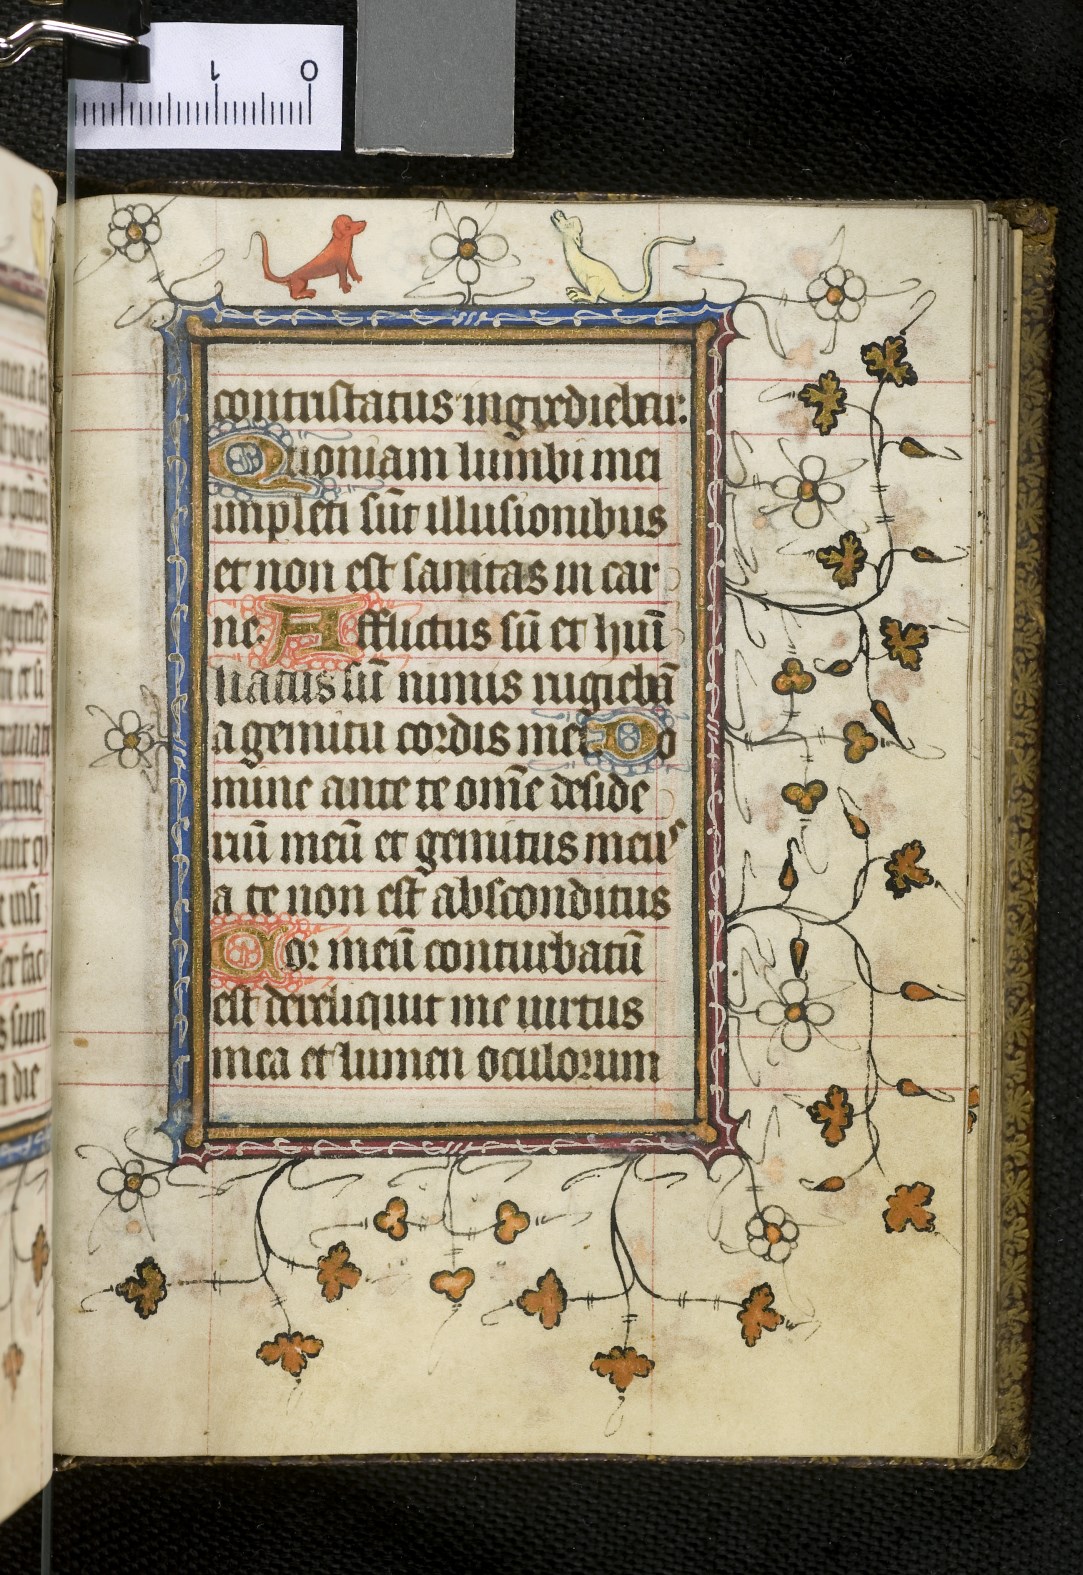 1 0
contristatus ingrediebar:
Quoniam lumbi mei
impleti sūt illusionibus
et non est sanitas in car
ne. Afflictus sū et hūi
liatus sū nimis rugiebā
a gemitu cordis mei. Do
mine ante te om̄e deside
riū meū et gemitus meus
a te non est absconditus
Cor meū conturbatū
est dereliquit me uirtus
mea et lumen oculorum